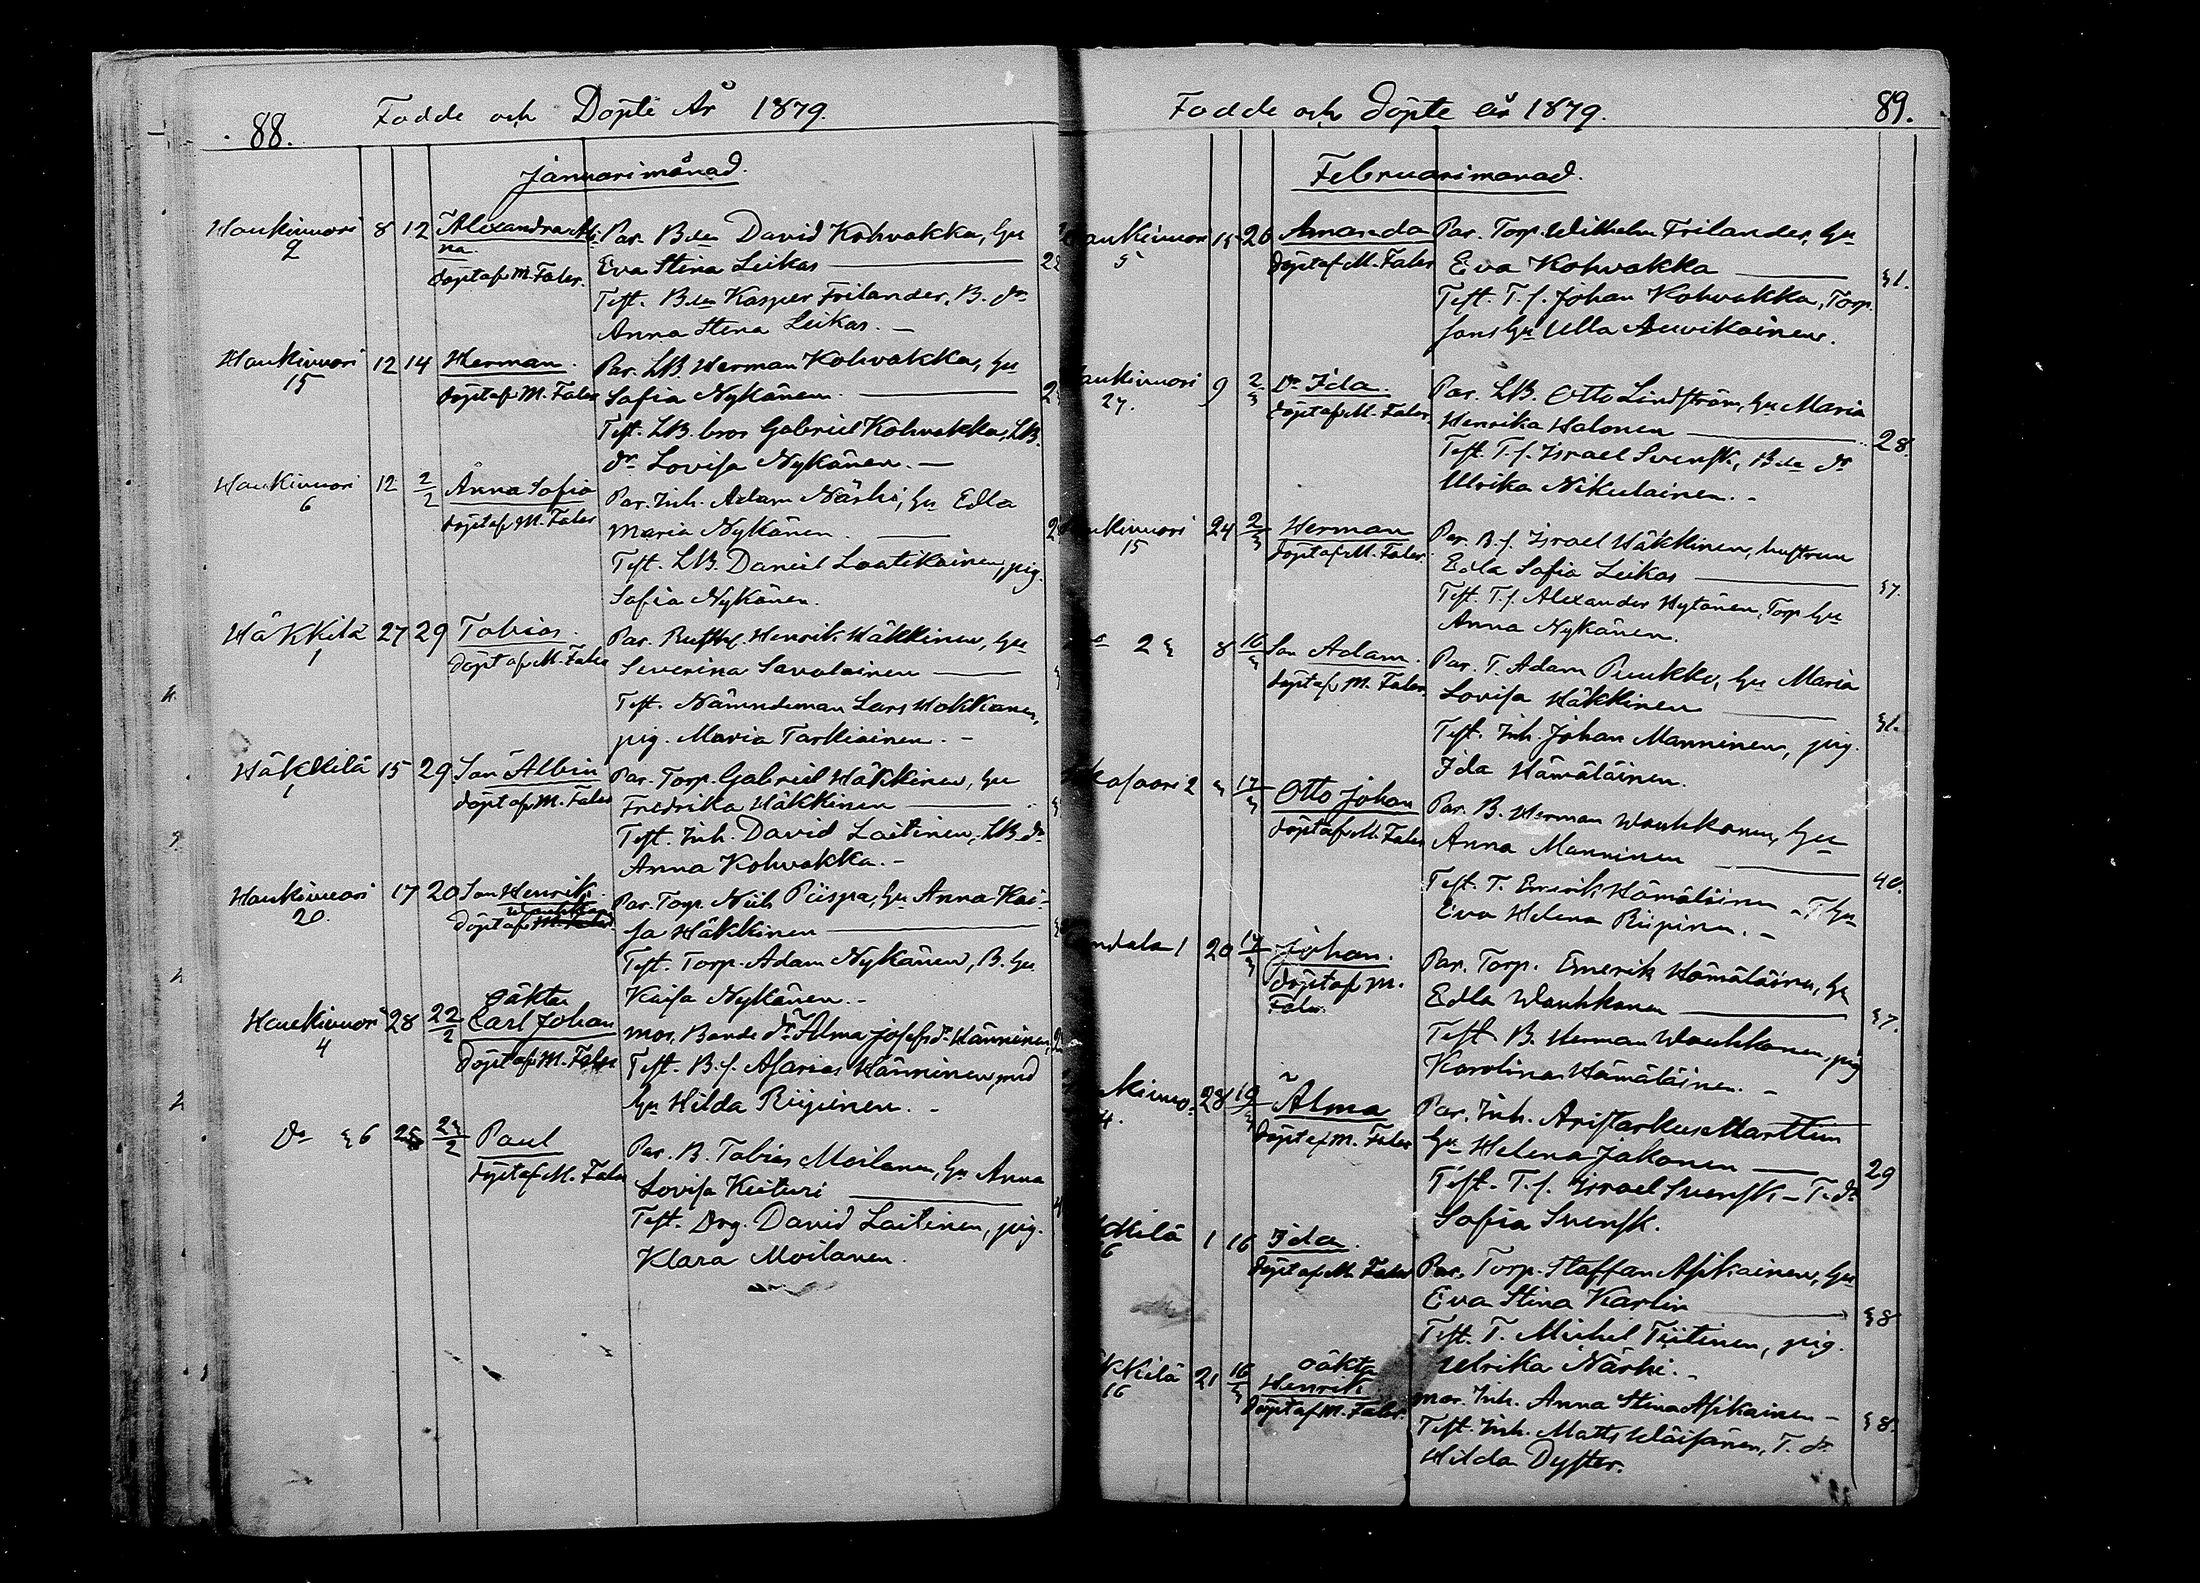 88.
Fodde och Döpte År 1879.
Januarimånad.
Haukivuori 8 12 Alexandra
na Par. David Kohvakka, hu
9 döpt af M. Faler. Eva Stina Leikas
Test. Kasper Frilander, B. dr
Anna Stina Leikas.
Haukivuori 12 14 Herman. Par. LB. Herman Kohvakka, hu
15 döpt af M. Faler Sofia Nykänen.
Test. LB. bror Gabriel Kohvakka, LB.
dr Lovisa Nykänen.
Haukivuori 12 2/2 Anna Sofia Par. Inh. Adam Närhi, hu Edla
6 döpt af M. Faler Maria Nykänen.
Test. LB. Daniel Laatikainen, pig.
Sofia Nykänen.
Häkkilä 27 29 Tobias. Par. Henrik Häkkinen, hu
1 döpt af M. Faler Severina Savolainen
Test. Nämndeman Lars Hokkanen,
pig. Maria Tarkiainen.
Häkkilä 15 29 Son Albin Par. Torp. Gabriel Häkkinen, hu
1 döpt af M. Faler Fredrika Häkkinen
Test. Inh. David Laitinen, LB. dr
Anna Kohvakka.
Haukivuori 17 20 Son Henrik Par. Torp. Nils Piispa, hu Anna Kai-
20 döpt af M. Faler sa Häkkinen
Test. Torp. Adam Nykänen, B. hu
Kaisa Nykänen.
oäkta
Haukivuori 28 22/2 Carl Johan mor. Bonde dr Alma Josefsdr Hänninen,
4 döpt af M. Faler Test. B.s. Asarias Hänninen med
hu Hilda Riipinen.
Do 36 23/2 Paul Par. B. Tobias Moilanen, hu Anna
döpt af M. Faler Lovisa Kuituri
Test. Drg. David Laitinen, pig.
Klara Moilanen.
Fodde och döpte år 1879. 89.
Februarimanad.
Haukivuori 15 26 Amanda Par. Torp. Wilhelm Frilander, hu
5 döpt af M. Faler Eva Kohvakka 31.
Test. T.s. Johan Kohvakka, Torp.
sons hu Ulla Auvikainen.
Haukivuori 9 2/3 Dr Ida. Par. LB. Otto Lindström, hu Maria
27. döpt af M. Faler Henrika Halonen 28.
Test. T.s. Israel Svensk, Bde dr
Ulrika Nikulainen.
Haukivuori 24 2/3 Herman Par. B.s. Israel Häkkinen, hustrun
15 döpt af M. Faler. Edla Sofia Leikas 37.
Test. T.s. Alexander Hytönen, Torp hu
Anna Nykänen.
Do 23 8 16/3 Son Adam. Par. T. Adam Puukko, hu Maria
döpt af M. Faler. Lovisa Häkkinen 31.
Test. Inh. Johan Manninen, pig.
Ida Hämäläinen.
2 3 17/3 Otto Johan Par. B. Herman Wauhkonen, hu
döpt af M. Faler Anna Manninen 40.
Test. T. Emerik Hämäläinen T. hu
Eva Helena Riipinen.
1 20 17/3 Johan. Par. Torp. Emerik Hämäläinen, hu
döpt af M.
Faler. Edla Wauhkonen 37.
Test. B. Herman Wauhkonen, pig
Karolina Hämäläinen.
28 19/3 Alma Par. Inh. Aristarkus Marttinen
4. döpt af M. Faler hu Helena Jakonen 29
Test. T.s. Israel Svensk T. dr
Sofia Svensk.
1 16 Ida. Par. Torp. Staffan Asikainen, hu
6 döpt af M. Faler Eva Stina Karlin 38
Test. T. Mickel Tiitinen, pig.
Ulrika Närhi.
oäkta
21 16/3 Henrik mor. Inh. Anna Stina Asikainen 38.
16 döpt af M. Faler Test. Inh. Matts Wäisänen, T. dr
Hilda Dyster.